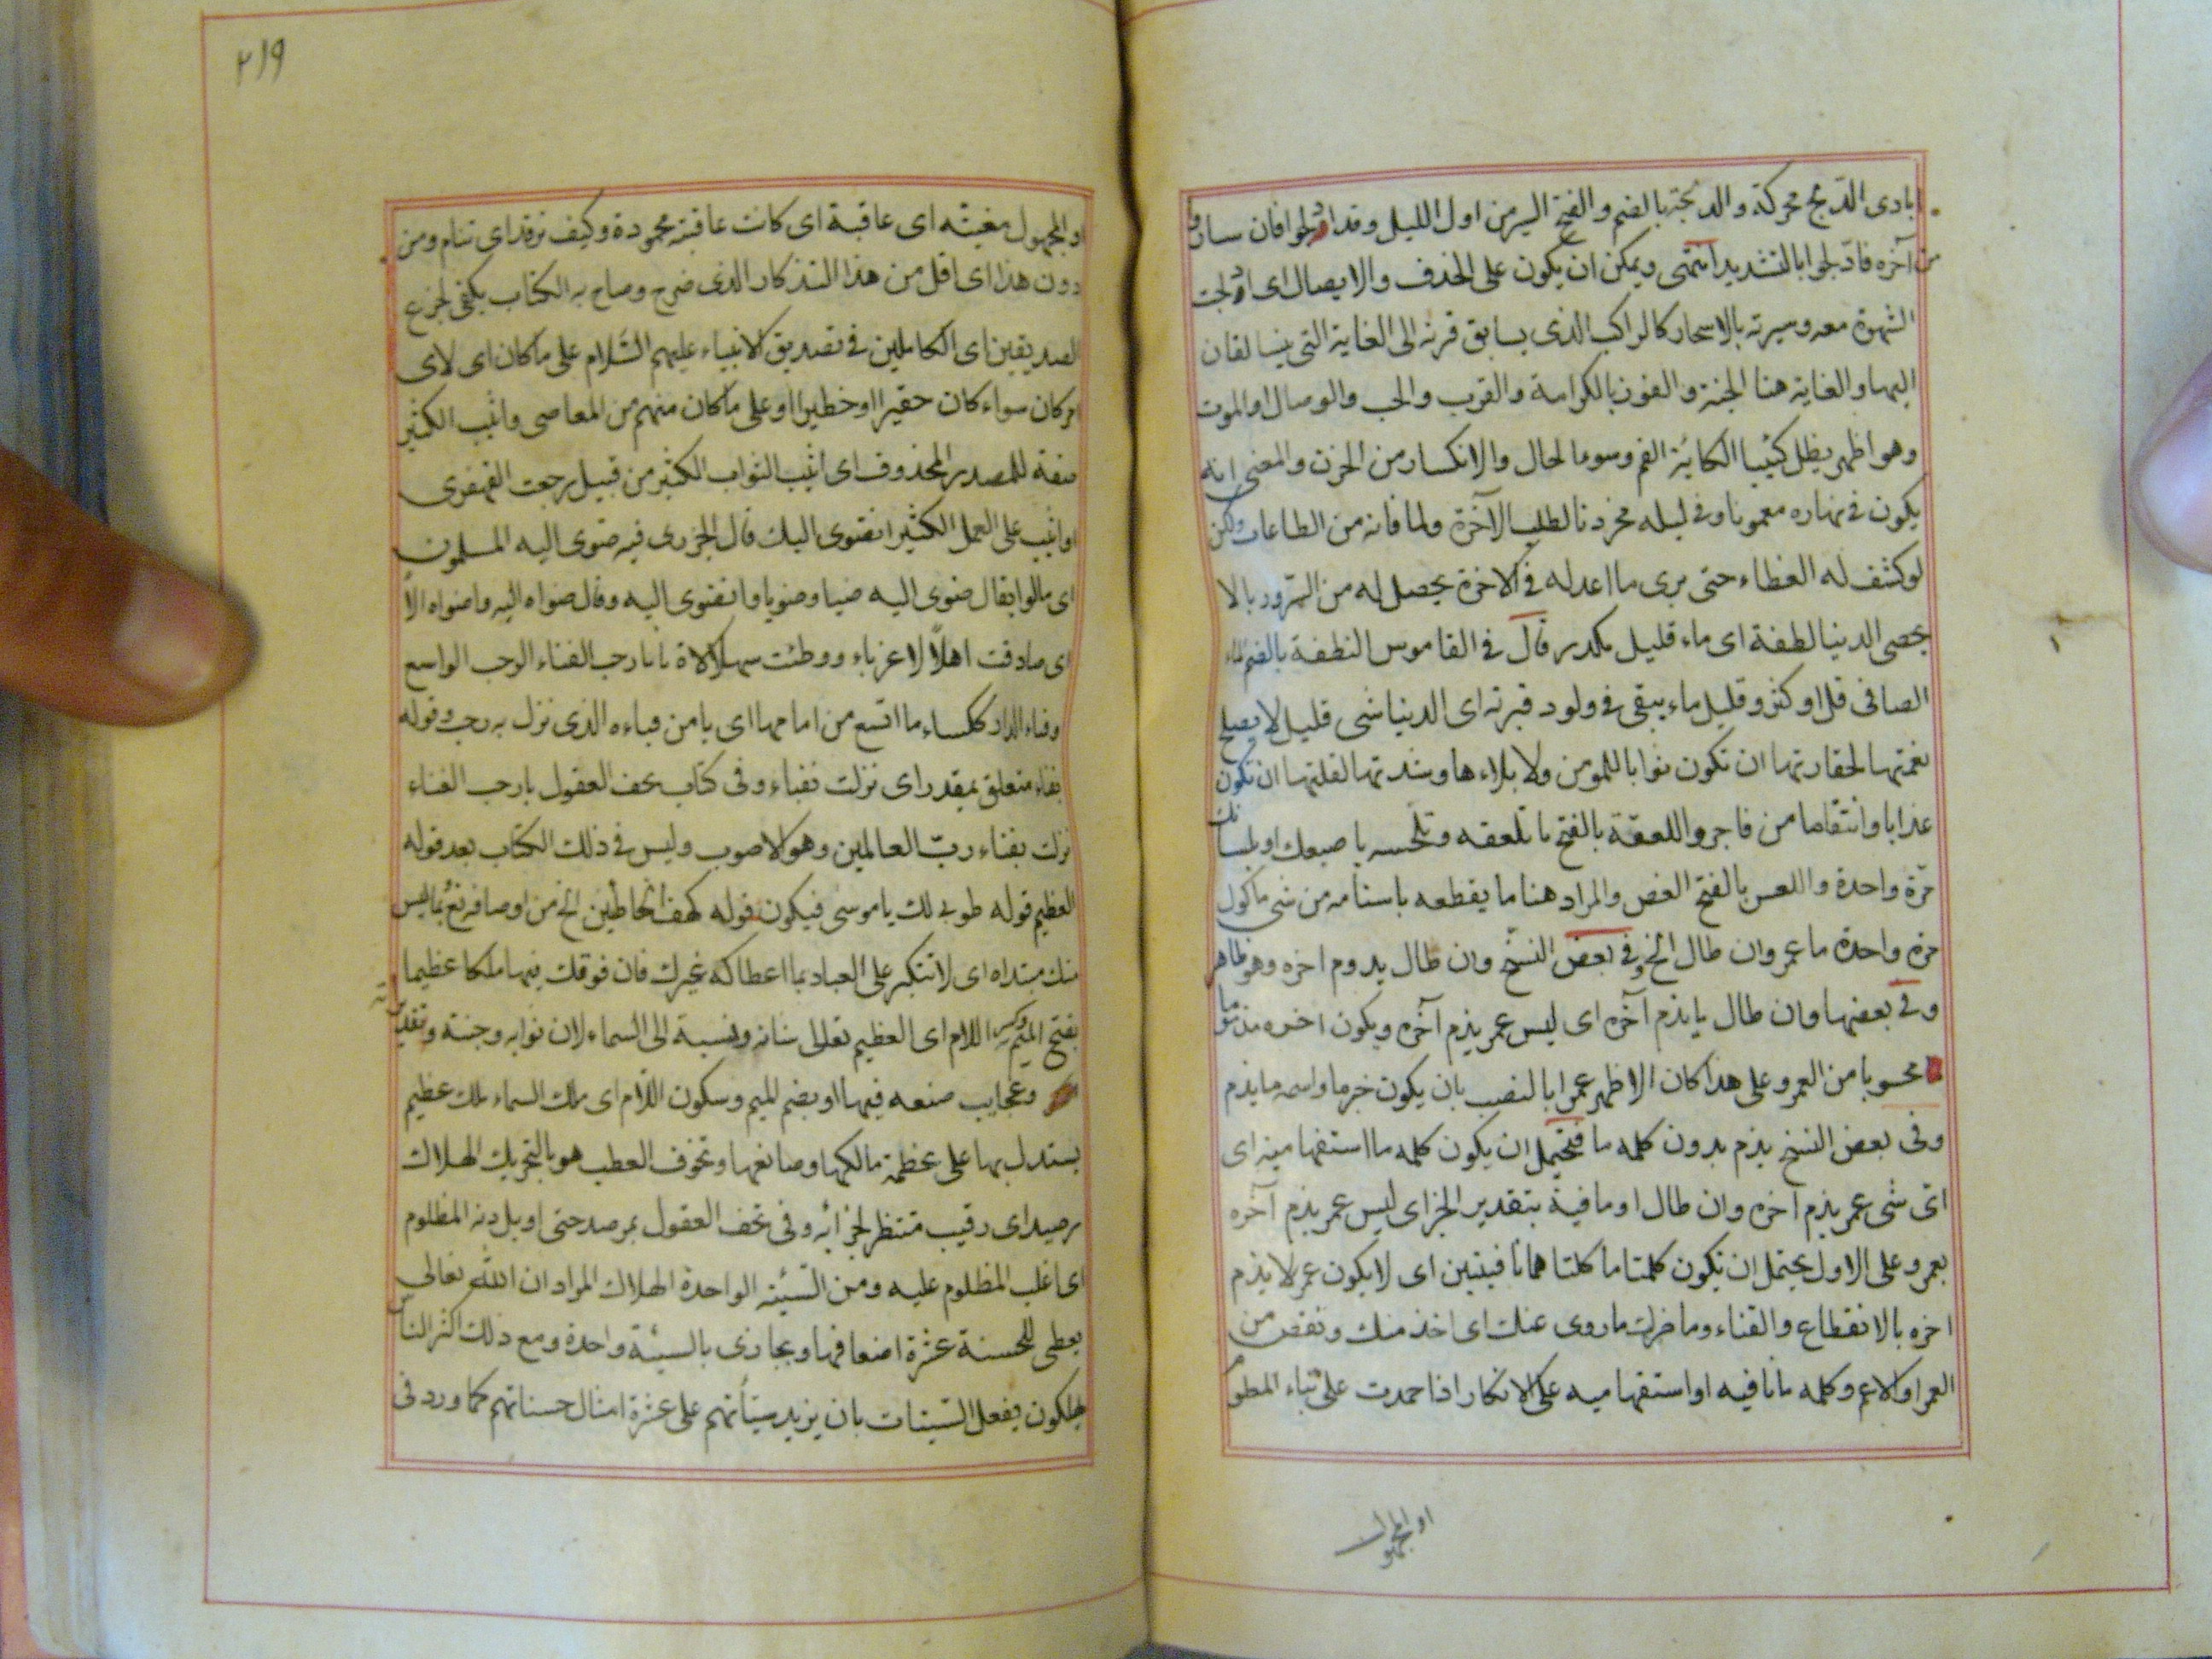 ابادى الدلج محركة والدلجة بالضم والفتح السير من اول الليل وقد ادلجوا فان ساروا
من آخره فادّلجوا بالتشديد انتهى ويمكن ان يكون على الحذف والايصال اى ادلجت
الشهوة معه وسيرته بالاسحار كالراكب الذى يسابق قرنه الى الغاية التى يتسابقان
اليها والغاية هنا الجنة والفوز بالكرامة والقرب والحب والوصال او الموت
وهو اظهر يظل كئيبا الكابة الغم وسوء الحال والانكسار من الحزن والمعنى انه
يكون فى نهاره مغموما وفى ليله محزونا لطلب الآخرة ولما فاته من الطاعات ولكن
لو كشف له الغطاء حتى يرى ما اعد له فى الاخرة يحصل له من السرور ما لا
يحصى الدنيا نطفة اى ماء قليل مكدر قال فى القاموس النطفة بالضم الماء
الصافى قل او كثر وقليل ماء يبقى فى دلو او قربة اى الدنيا شى قليل لا يصلح
نعمتها لحقارتها ان تكون ثوابا للمومن ولا بلاءها وشدتها لقلتها ان تكون
عذابا وانتقاما من فاجر واللعقة بالفتح ما تلعقه وتلحسه باصبعك او بلسانك
مرة واحدة واللعس بالفتح العض والمراد هنا ما يقطعه باسنانه من شى ماكول
مرة واحدة ما عمر وان طال الخ وفى بعض النسخ وان طال يدوم اخره وهو ظاهر
وفى بعضها وان طال ما يذم آخره اى ليس عمر يذم آخره ويكون اخره مذموما
محسوبا من العمر وعلى هذا كان الاظهر عمرا بالنصب بان يكون خبر ما واسمه ما يذم
وفى بعض النسخ يذم بدون كلمه ما فيحتمل ان يكون كلمه ما استفهامية اى
اى شى عمر يذم اخره وان طال او ما فية بتقدير الجزاى ليس عمر يذم آخره
بعمر وعلى الاول يحتمل ان تكون كلمتا ما كلتاهما نافيتين اى لا يكون عمر لا يذم
اخره بالانقطاع والفناء وما ضرك ما زوى عنك اى اخذ منك ونقص من
العمر او الاعم وكلمه ما نافيه او استفهاميه على الانكار اذا حمدت على بناء المعلوم
او المجهول
٢١٩
او المجهول مغبته اى عاقبة اى كانت عاقبته محمودة وكيف ترقد اى تنام ومن
دون هذا اى اقل من هذا التذكار الذى صرح وصاح به الكتاب يكفى لجزع
الصديقين اى الكاملين فى تصديق الانبياء عليهم السّلام على ما كان اى لاى
امر كان سواء كان حقيرا او خطيرا او على ما كان منهم من المعاصى واثيب الكثير
صفة للمصدر المحذوف اى اثيب الثواب الكثير من قبيل رجعت القهقرى
او اثيب على العمل الكثير انضوى اليك قال الجزرى فيه ضوى اليه المسلمون
اى مالوا يقال ضوى اليه ضيا وضويا وانضوى اليه وقال ضواه اليه واضواه الا
اى صادفت اهلاً لا غرباء ووطئت سهلا لا يا رحب الفناء الرحب الواسع
وفناء الدار ككساء ما اتسع من امامها اى يا من فناءه الذى نزل به رحب وقوله
بفناء متعلق بمقدر اى نزلت بفناء وفى كتاب تحف العقول يا رحب الفناء
نزلت بفناء ربّ العالمين وهو الاصوب وليس فى ذلك الكتاب بعد قوله
العظيم قوله طوبى لك يا موسى فيكون قوله كهف الخاطئين الخ من اوصافه تع بما ليس
منك مبتداه اى لا تتكبر على العباد بما اعطاكه غيرك فان فوقك فيها ملكا عظيما
بفتح الميم وكسر اللام اى العظيم تعالى شانه ونسبة الى السماء لان ثوابه وجنته وتقديراته
وعجايب صنعه فيها او بضم الميم وسكون اللّام اى ملك السماء ملك عظيم
يستدل بها على عظمة مالكها وصانعها وتخوف العطب هو بالتحريك الهلاك
برصيد اى رقيب منتظر لجزائه وفى تحف العقول بمرصد حتى اديل منه المظلوم
اى اغلب المظلوم عليه ومن السّيئة الواحدة الهلاك المراد ان الله تعالى
يعطى للحسنة عشرة اضعافها ويجازى بالسيئة واحدة ومع ذلك اكثر الناس
يهلكون بفعل السّيئات بان يزيد سيئاتهم على عشرة امثال حسناتهم كما ورد فى